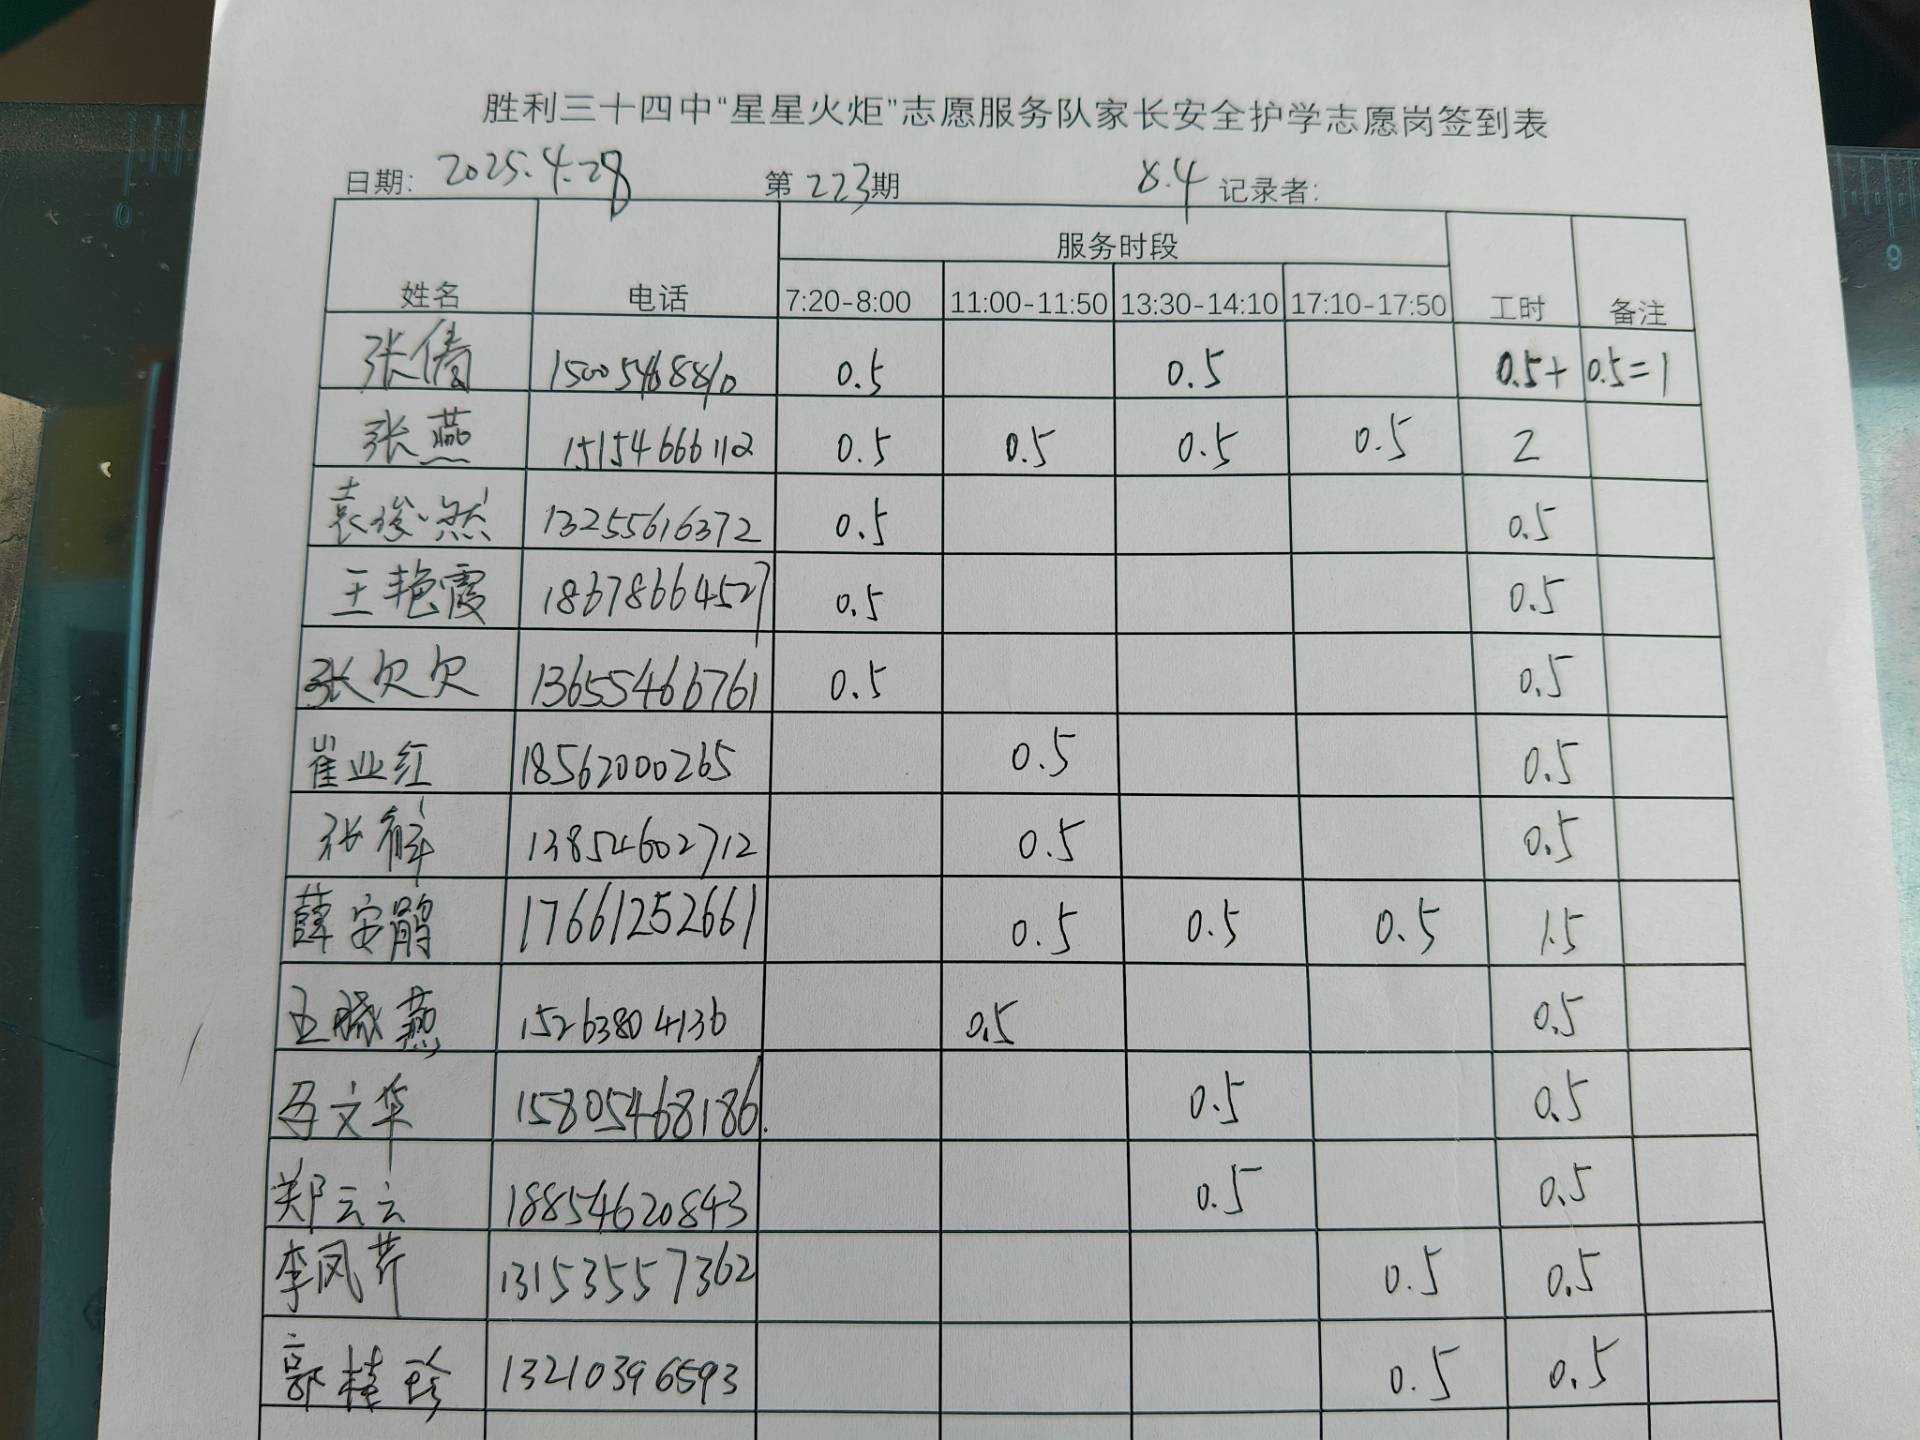 胜利三十四中“星星火炬”志愿服务队家长安全护学志愿岗签到表
日期: 2025.4.28 第 223期 8.4 记录者:
服务时段
姓名 电话 7:20-8:00 11:00-11:50 13:30-14:10 17:10-17:50 工时 备注
张倩 15005468810 0.5 0.5 0.5+ 0.5=1
张燕 15154666112 0.5 0.5 0.5 0.5 2
袁俊然 13255616372 0.5 0.5
王艳霞 18678664527 0.5 0.5
张欠欠 13655466761 0.5 0.5
崔业红 18562000265 0.5 0.5
张 13854602712 0.5 0.5
薛安鹃 17661252661 0.5 0.5 0.5 1.5
燕 15263804136 0.5 0.5
文华 15805468186. 0.5 0.5
郑云云 18854620843 0.5 0.5
李凤芹 13153557362 0.5 0.5
郭桂珍 13210396593 0.5 0.5